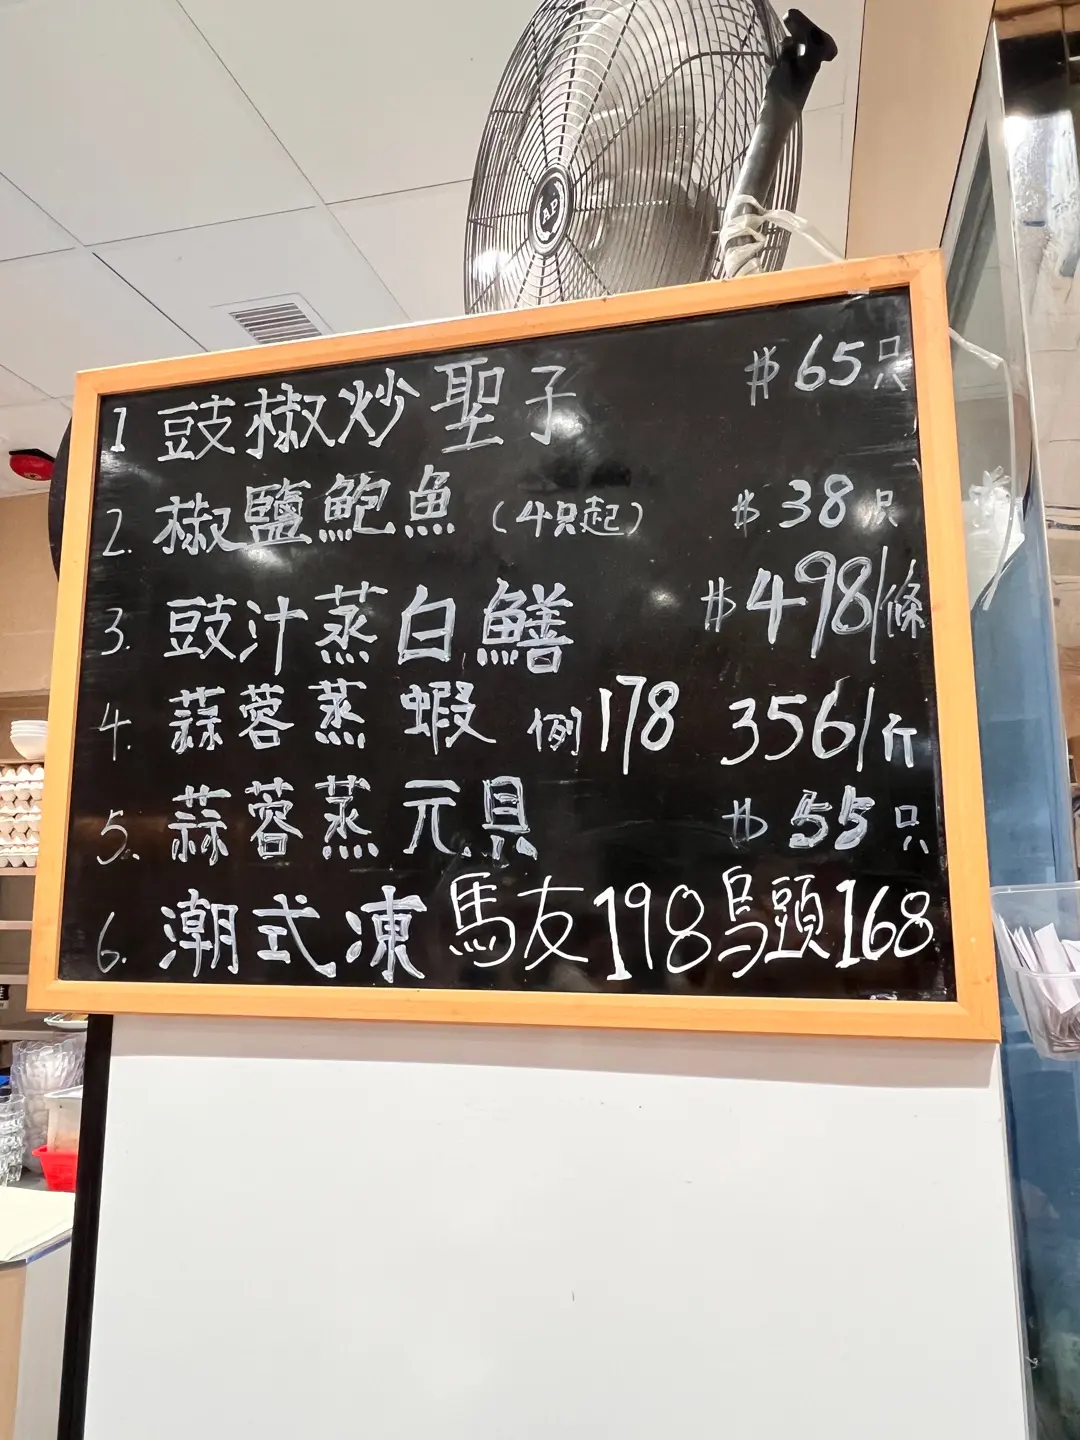 AP
1 豉椒炒聖子 $65只
2. 椒鹽鮑魚 (4只起) $38只
3. 豉汁蒸白鱔 $498/條
4. 蒜蓉蒸蝦 例178 356/斤
5. 蒜蓉蒸元具 $55只
6. 潮式凍馬友198烏頭168